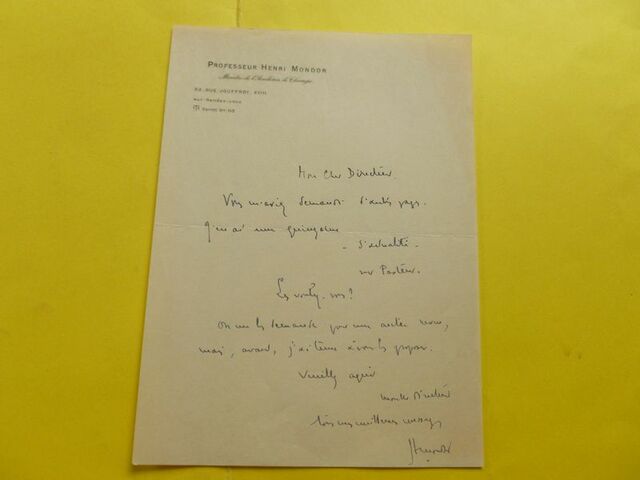 PROFESSEUR HENRI MONDOR
Membre de l'Académie de Chirurgie
RUE JOUFFROY, XVII
SUR RENDEZ-VOUS
Mon Cher Directeur.
Vous m'aviez demandé d'autres pages.
J'en ai une quinzaine
- d'actualité -
sur Pasteur.
Les voulez-vous?
On me les demande pour une autre revue,
mais, avant, j'ai tenu à vous les proposer.
Veuillez agréer
mon cher Directeur
tous mes meilleurs messages